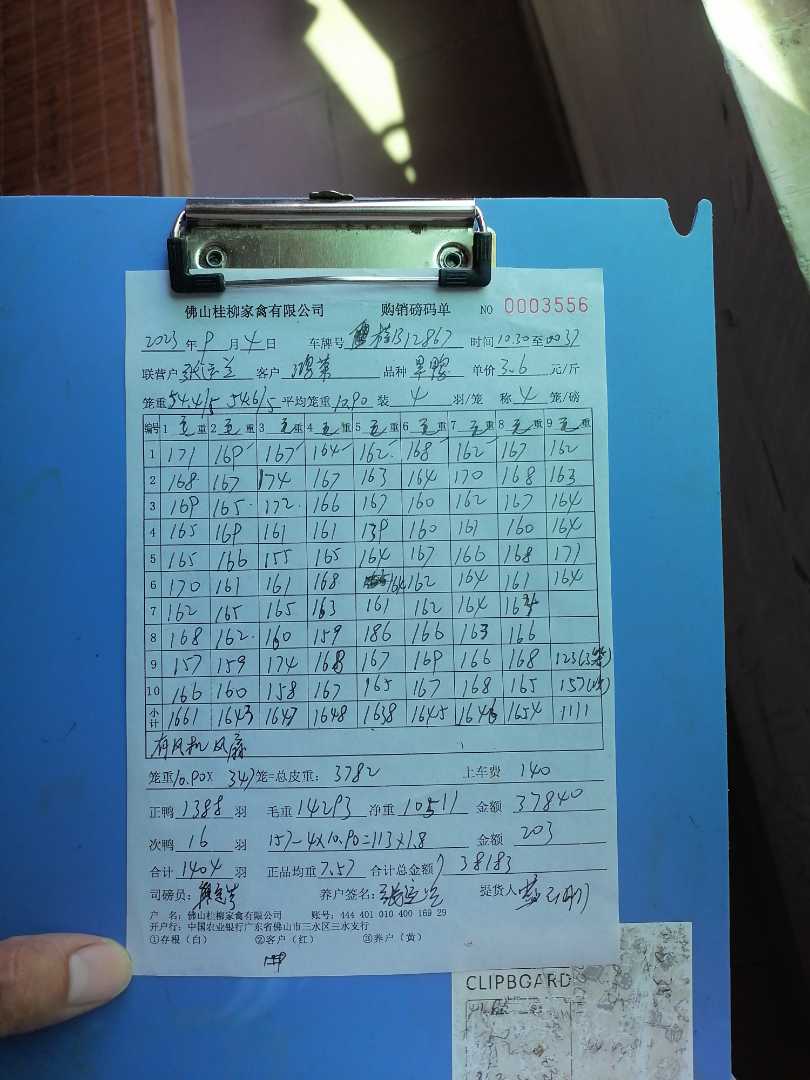 佛山桂柳家禽有限公司 购销磅码单 NO 0003556
2023 年 9 月 4 日 车牌号 桂B12867 时间 10.30 至 00 37
联营户 张运兰 客户 品种 单价 3.6 元/斤
笼重 54.4/5 54.6/5 平均笼重 10.90 装 4 羽/笼 称 4 笼/磅
编号 1 毛重 2 毛重 3 毛重 4 毛重 5 毛重 6 毛重 7 毛重 8 毛重 9 毛重
1 171 169 167 164 162 168 162 167 162
2 168 167 174 167 163 164 170 168 163
3 169 165 172 166 167 160 162 167 164
4 165 169 161 161 139 160 161 160 164
5 165 166 155 165 164 167 166 168 171
6 170 161 161 168 164 162 164 161 164
7 162 165 165 163 161 162 164 164
8 168 162 160 159 186 166 163 166
9 157 159 174 168 167 169 166 168 123(3笼)
10 166 160 158 167 165 167 168 165 157
小计 1661 1643 1647 1648 1638 1645 1646 1654 1111
有风机风扇
笼重 10.90 X 347 笼=总皮重: 3782 上车费 140
正鸭 1388 羽 毛重 14293 净重 10511 金额 37840
次鸭 16 羽 157-4×10.90=113×1.8 金额 203
合计 1404 羽 正品均重 7.57 合计总金额 38183
司磅员: 养户签名: 张运兰 提货人
户 名: 佛山桂柳家禽有限公司 账号: 444 401 010 400 169 29
开户行: 中国农业银行广东省佛山市三水区三水支行
①存根(白) ②客户(红) ③养户(黄)
CLIPBOARD